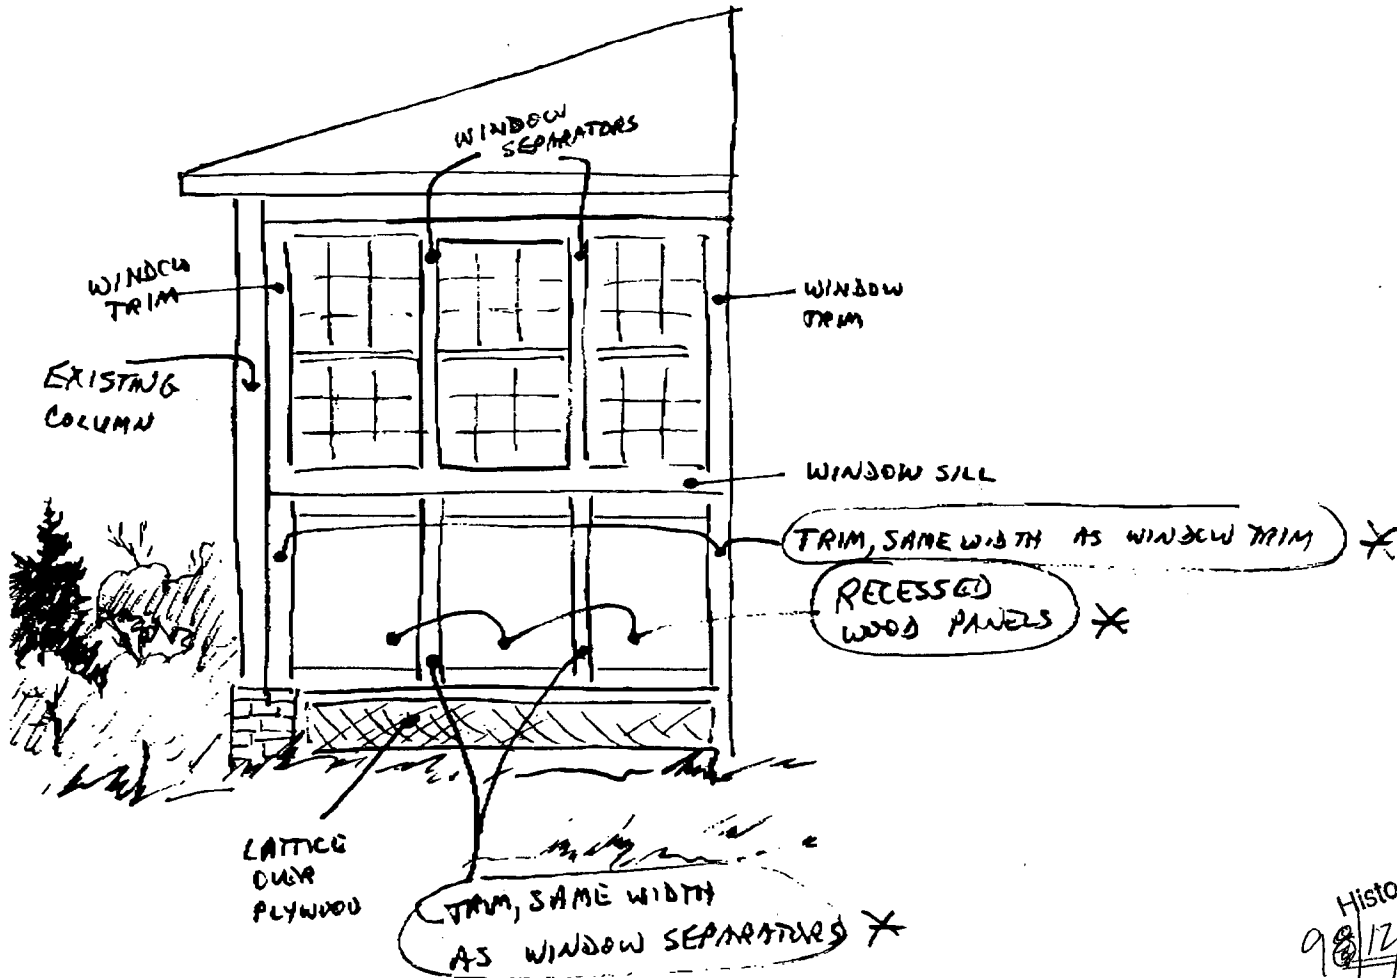 WINDOW
SEPARATORS
WINDOW
TRIM
WINDOW
TRIM
EXISTING
COLUMN
WINDOW SILL
TRIM, SAME WIDTH AS WINDOW TRIM
RECESSED
WOOD PANELS
LATTICE
OVER
PLYWOOD
TRIM, SAME WIDTH
AS WINDOW SEPARATORS
Histo